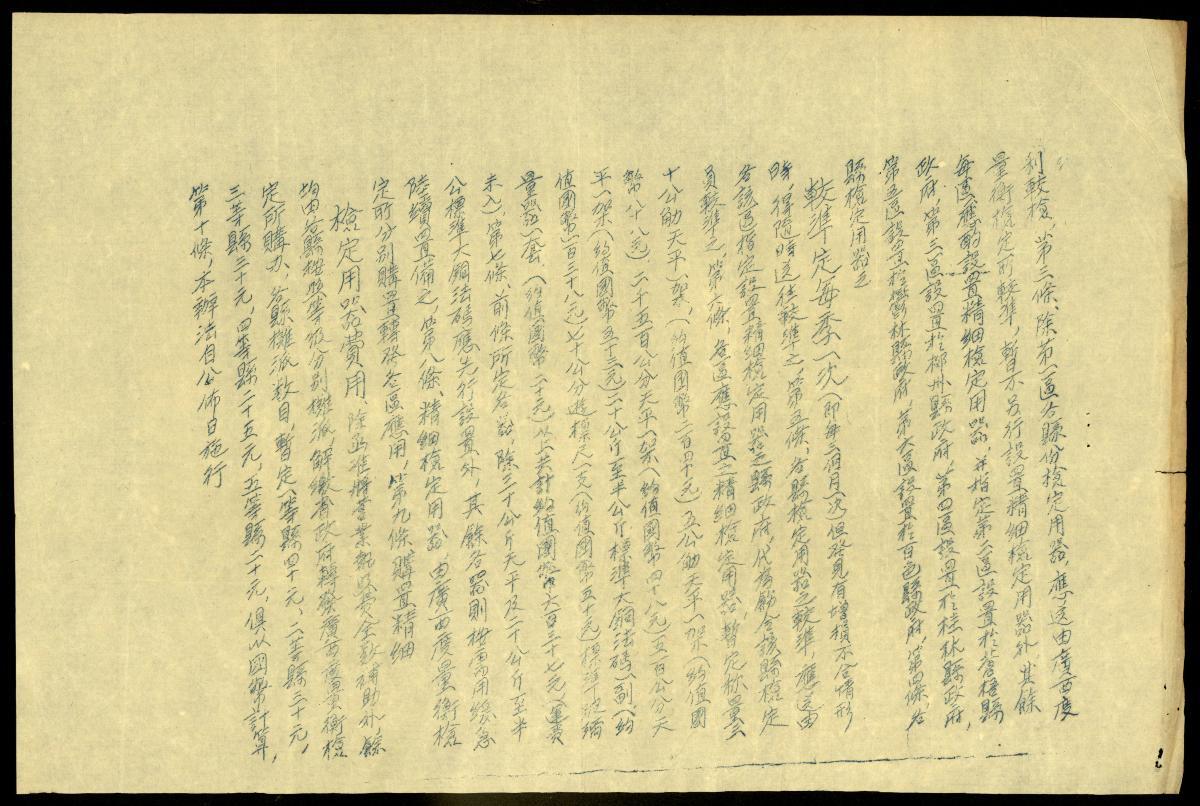 利較檢，第三條、除第一區各縣份檢定用器，應送由廣西度
量衡檢定所較準，暫不另行設置精細檢定用器外，其餘
每區應酌設置精細檢定用器，并指定第二區設置於蒼梧縣
政府，第三區設置於柳州縣政府，第四區設置於桂林縣政府，
第五區設置於鬱林縣政府，第六區設置於百色縣政府，第四條、各
縣檢定用器之
較準定每季一次（即每三個月一次）但發見有增損不合情形
時，得隨時送往較準之，第五條、各縣檢定用器之較準，應送由
各該區指定設置精細檢定用器之縣政府，代為飭令該縣檢定
員較準之，第六條，各區應設置之精細檢定用器暫定称量三
十公觔天平一架，（約值國幣二百四十元）五公觔天平一架（約值國
幣八十八元），二十五百公分天平一架（約值國幣四十八元）五百公分天
平一架（約值國幣五十三元）二十公斤至半公斤標準大銅法碼一副（約
值國幣一百三十八元）七十公分遊標尺一支（約值國幣五十元）標準玻璃
量器一套（約值國幣二十元）以上共計約值國幣六百三十七元（運費
未入），第七條、前條所定各器，除三十公斤天平及二十公斤至半
公標準大銅法碼應先行設置外，其餘各器則按需用緩急
陸續置備之，第八條、精細檢定用器，由廣西度量衡檢
定所分別購置轉發各區應用，第九條購置精細
檢定用器費用、除函准將營業執照費全數補助外，餘
均由各縣按照等級分別攤派，解繳省政府轉發廣西度量衡檢
定所購办、各縣攤派数目，暫定一等縣四十元、二等縣三十元，
三等縣三十元，四等縣二十五元，五等縣二十元，俱以國幣計算，
第十條，本辦法自公佈日施行